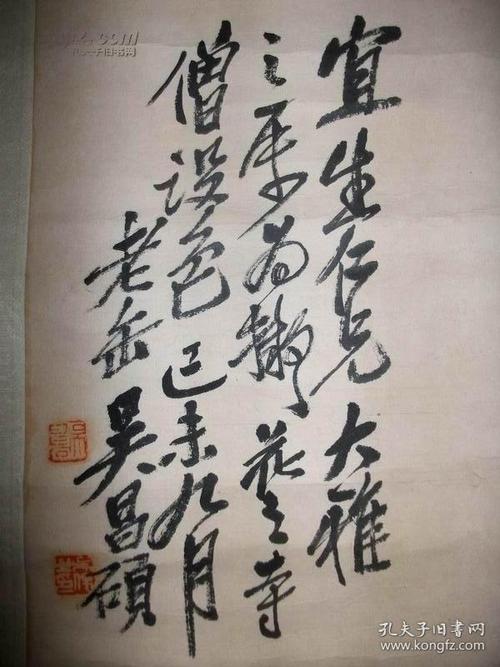 宜生仁兄大雅
之屬為擬花之寺
僧設色己未九月
老缶吳昌碩
孔夫子旧书网
www.kongfz.com